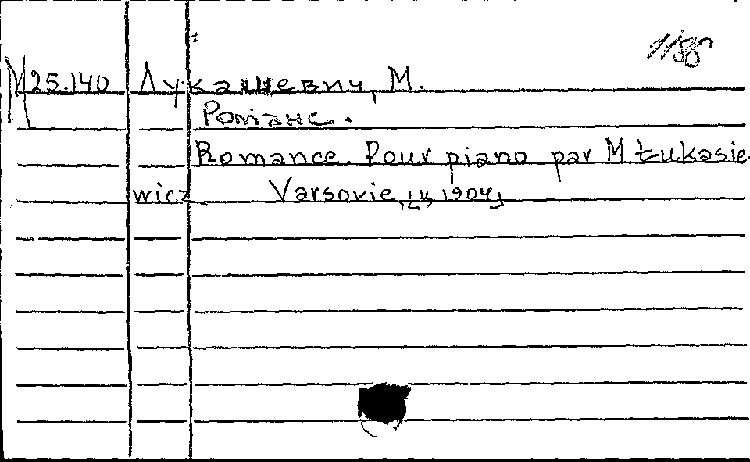 1/38
М 25.140 Лукашевич, М.
Романс.
Romance pour piano par M Łukasie
wicz Varsovie, 1904]